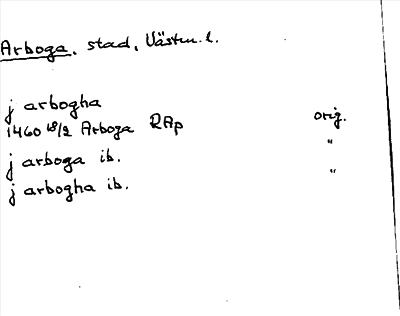 Arboga, stad, Västm. l.
j arbogha
1460 18/2 Arboga RAp orig.
j arboga ib. "
j arbogha ib. "